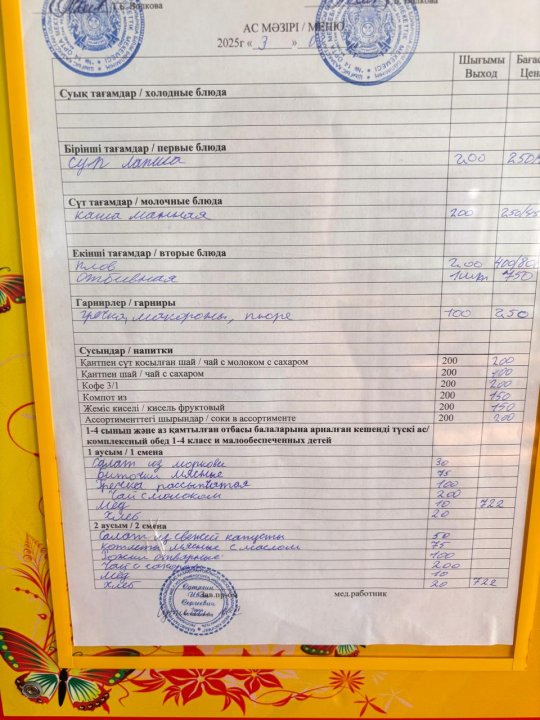 Т.Б. Волкова
Г.В. Волкова
АС МӘЗІРІ / МЕНЮ
2025г « 3 »
Шығымы Баға
Выход Цена
Суық тағамдар / холодные блюда
Бірінші тағамдар / первые блюда
суп лапша 200 250/
Сүт тағамдар / молочные блюда
каша манная 200 250/
Екінші тағамдар / вторые блюда
плов 200 400/80
отбивная 1шт 750
Гарнирлер / гарниры
гречка, макароны, пюре 100 250
Сусындар / напитки
Қантпен сүт қосылған шай / чай с молоком с сахаром 200 200
Қантпен шай / чай с сахаром 200 100
Кофе 3/1 200 200
Компот из 200 150
Жеміс киселі / кисель фруктовый 200 150
Ассортименттегі шырындар / соки в ассортименте 200 200
1-4 сынып және аз қамтылған отбасы балаларына арналған кешенді түскі ас/
комплексный обед 1-4 класс и малообеспеченных детей
1 ауысым / 1 смена
Салат из моркови 30
Биточки мясные 75
Гречка рассыпчатая 100
Чай с молоком 200
Мёд 10 722
Хлеб 20
2 ауысым / 2 смена
Салат из свежей капусты 50
Котлета мясные с маслом 75
Рожки отварные 100
Чай с сахаром 200
Мёд 10
Хлеб 20 722
Зав.пр-ва мед.работник